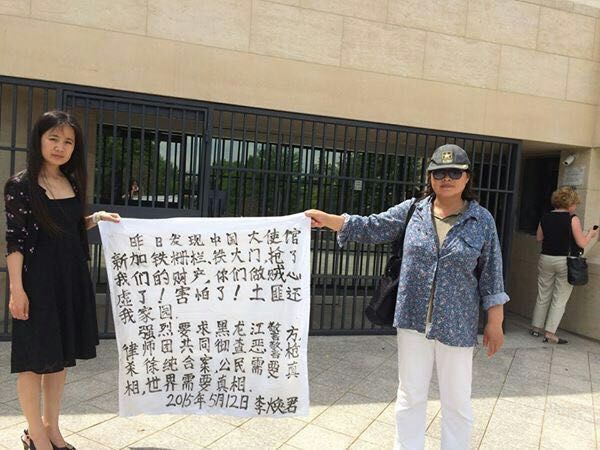 昨日发现中国大使馆
新加铁栅栏,铁大门,抢了
我们的财产,你们做贼心
虚了!害怕了!土匪还
我家园.
强烈要求黑龙江警方,
律师团共同彻查恶警枪
杀徐纯合案.公民需要真
相,世界需要真相.
2015年5月12日 李焕君